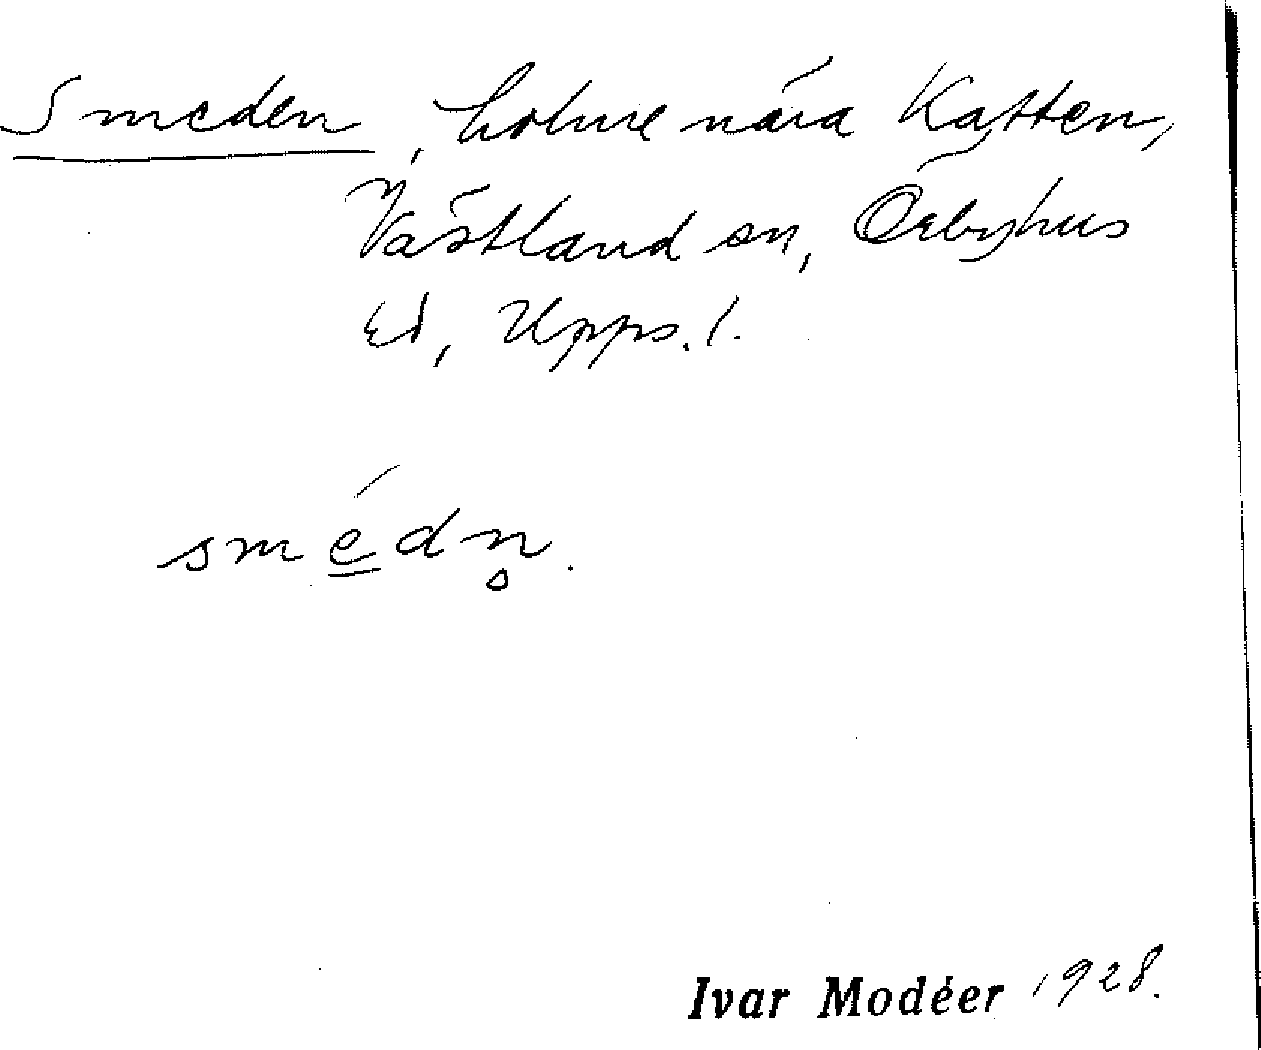 Smeden, holme nära Katten,
Västland sn, Örbyhus
hd, Upps. l.
smédn̥.
Ivar Modéer 1928.